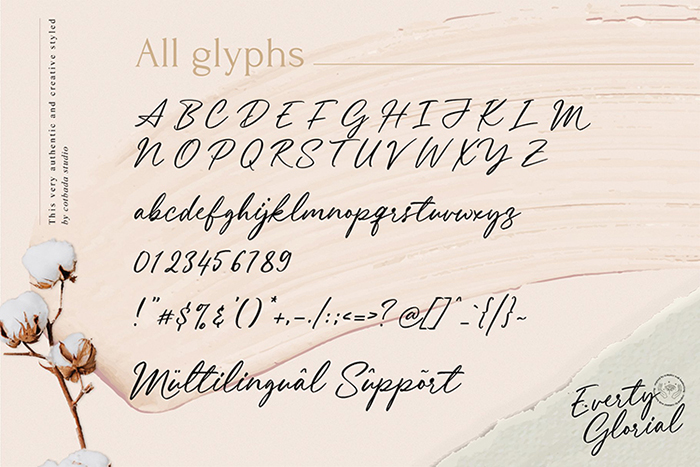 This very authentic and creative styled
by cotbada studio
All glyphs
A B C D E F G H I J K L M
N O P Q R S T U V W X Y Z
abcdefghijklmnopqrstuvwxyz
0123456789
!"#$%&'()*+,-./:;<=>?@[]^_`{|}~
Mültilinguâl Sûppõrt
Everty
Glorial